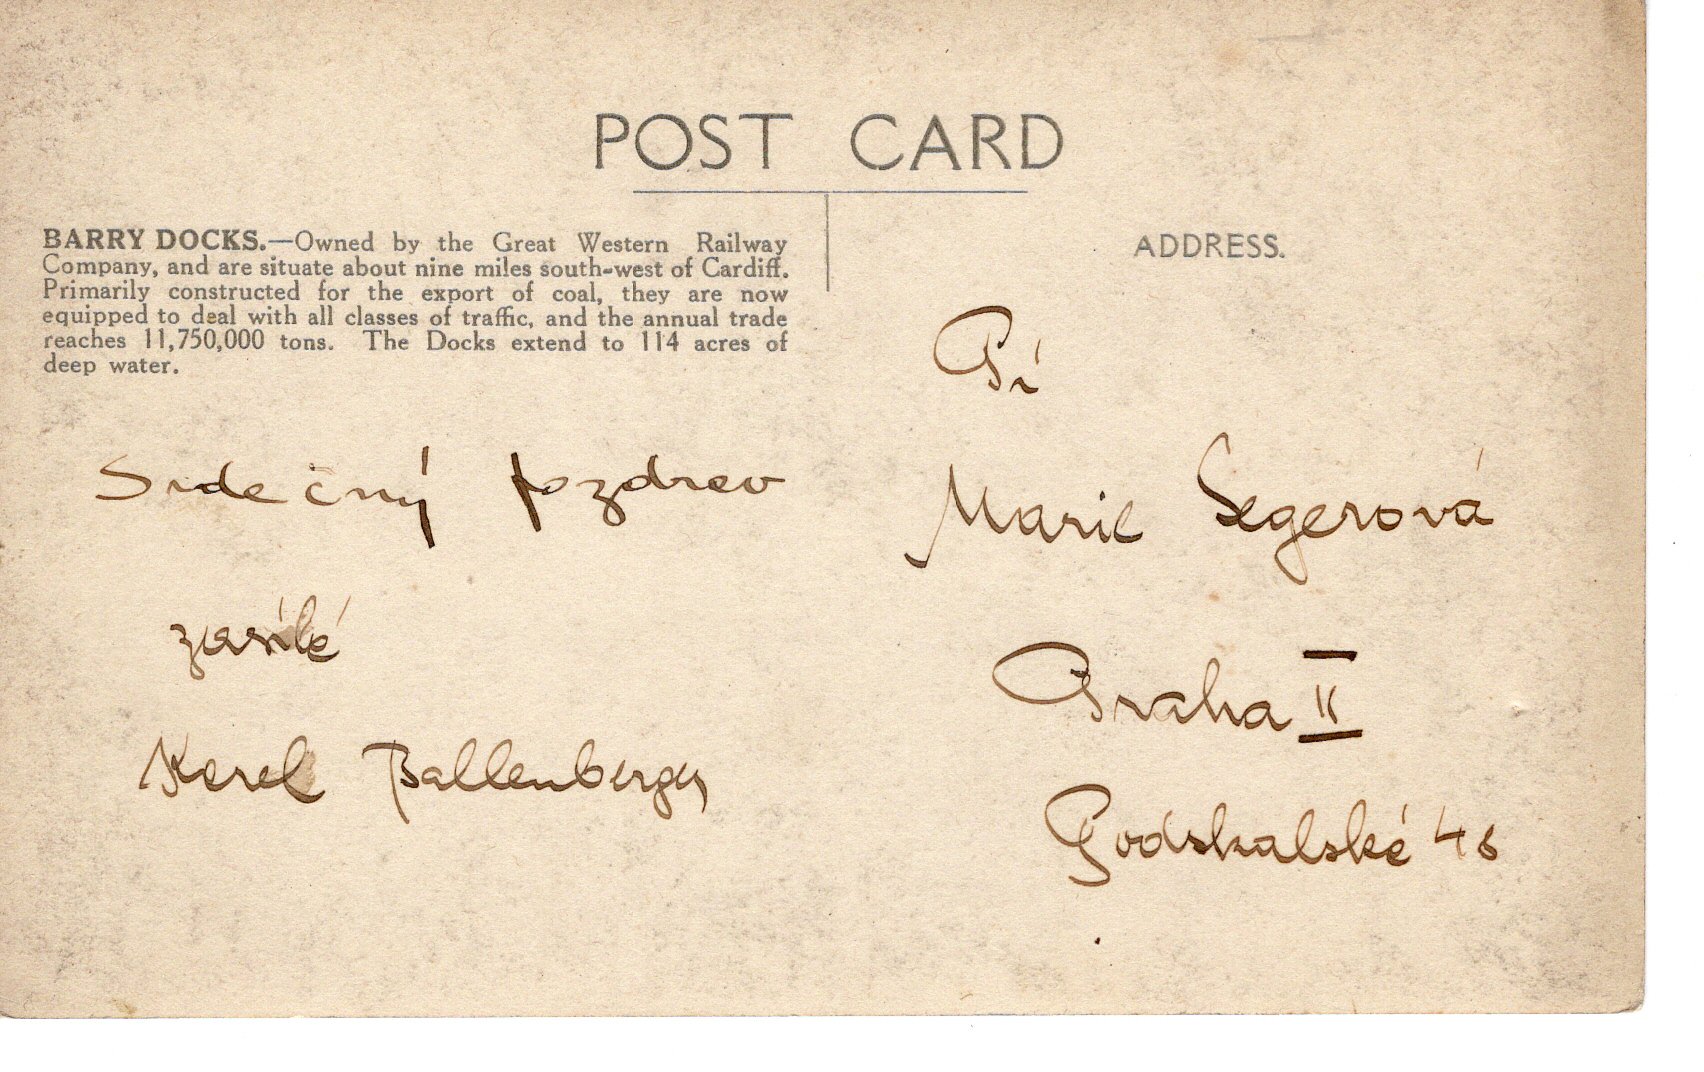 POST CARD
BARRY DOCKS.—Owned by the Great Western Railway
Company, and are situate about nine miles south-west of Cardiff.
Primarily constructed for the export of coal, they are now
equipped to deal with all classes of traffic, and the annual trade
reaches 11,750,000 tons. The Docks extend to 114 acres of
deep water.
Srdečný pozdrav
zasílá
Karel Ballenberger
ADDRESS.
Pí
Marie Segerová
Praha II
Podskalská 46